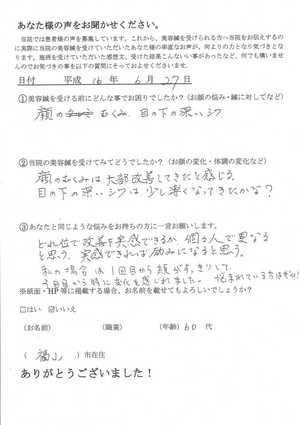 あなた様の声をお聞かせください。
当院では患者様の声を募集しています。これから、美容鍼を受けられる方へ当院をお伝えするの
に実際に当院の美容鍼を受けていただいたあなた様の率直なお声が、何よりの力となり気づきとな
ります。施術を受けていただいた感想文、受けた結果こんないい事があったなど、何でも構いませ
んのでお気づきの事を以下の質問にそっておよせくださいませ。
日付 平成 16 年 6 月 27 日
①美容鍼を受ける前にどんな事でお困りでしたか？（お顔の悩み・鍼に対してなど）
顔の むくみ、目の下の深いシワ
②当院の美容鍼を受けてみてどうでしたか？（お顔の変化・体調の変化など）
顔のむくみは大部改善してきたと感じる。
目の下の深いシワは少し薄くなってきたかな？
③あなたと同じような悩みをお持ちの方に一言お願いします。
どれ位で改善を実感できるか、個々人で異なる
と思う。実感できれば励みになると思う。
私の場合は1回目から顔がすっきりして、
3回目から特に変化を感じれました。悩まれている方はぜひ
※紙面・HP等に掲載する場合、お名前を載せてもよろしいでしょうか？
□はい ☑いいえ
（お名前） （職業） （年齢）60 代
（ 福山 ）市在住
ありがとうございました！